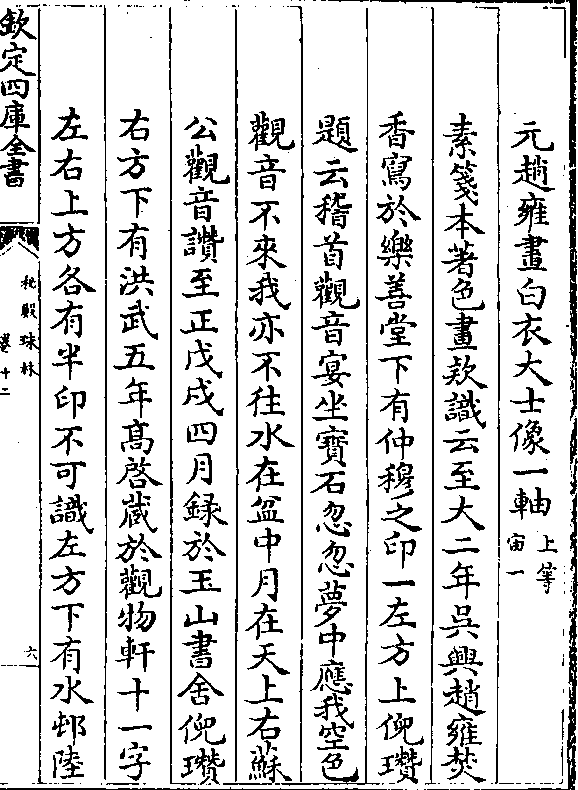 元趙雍畫白衣大士像一軸上等宙一
素箋本著色畫欵識云至大二年呉興趙雍焚
香寫於樂善堂下有仲穆之印一左方上倪瓚
題云稽首觀音宴坐寶石忽忽夢中應我空色
觀音不來我亦不往水在盆中月在天上右蘇
公觀音讚至正戊戌四月録於玉山書舍倪瓚
右方下有洪武五年髙啓蔵於觀物軒十一字
左右上方各有半印不可識左方下有水邨陸
欽定四庫全書
秘殿珠林
卷十二
六